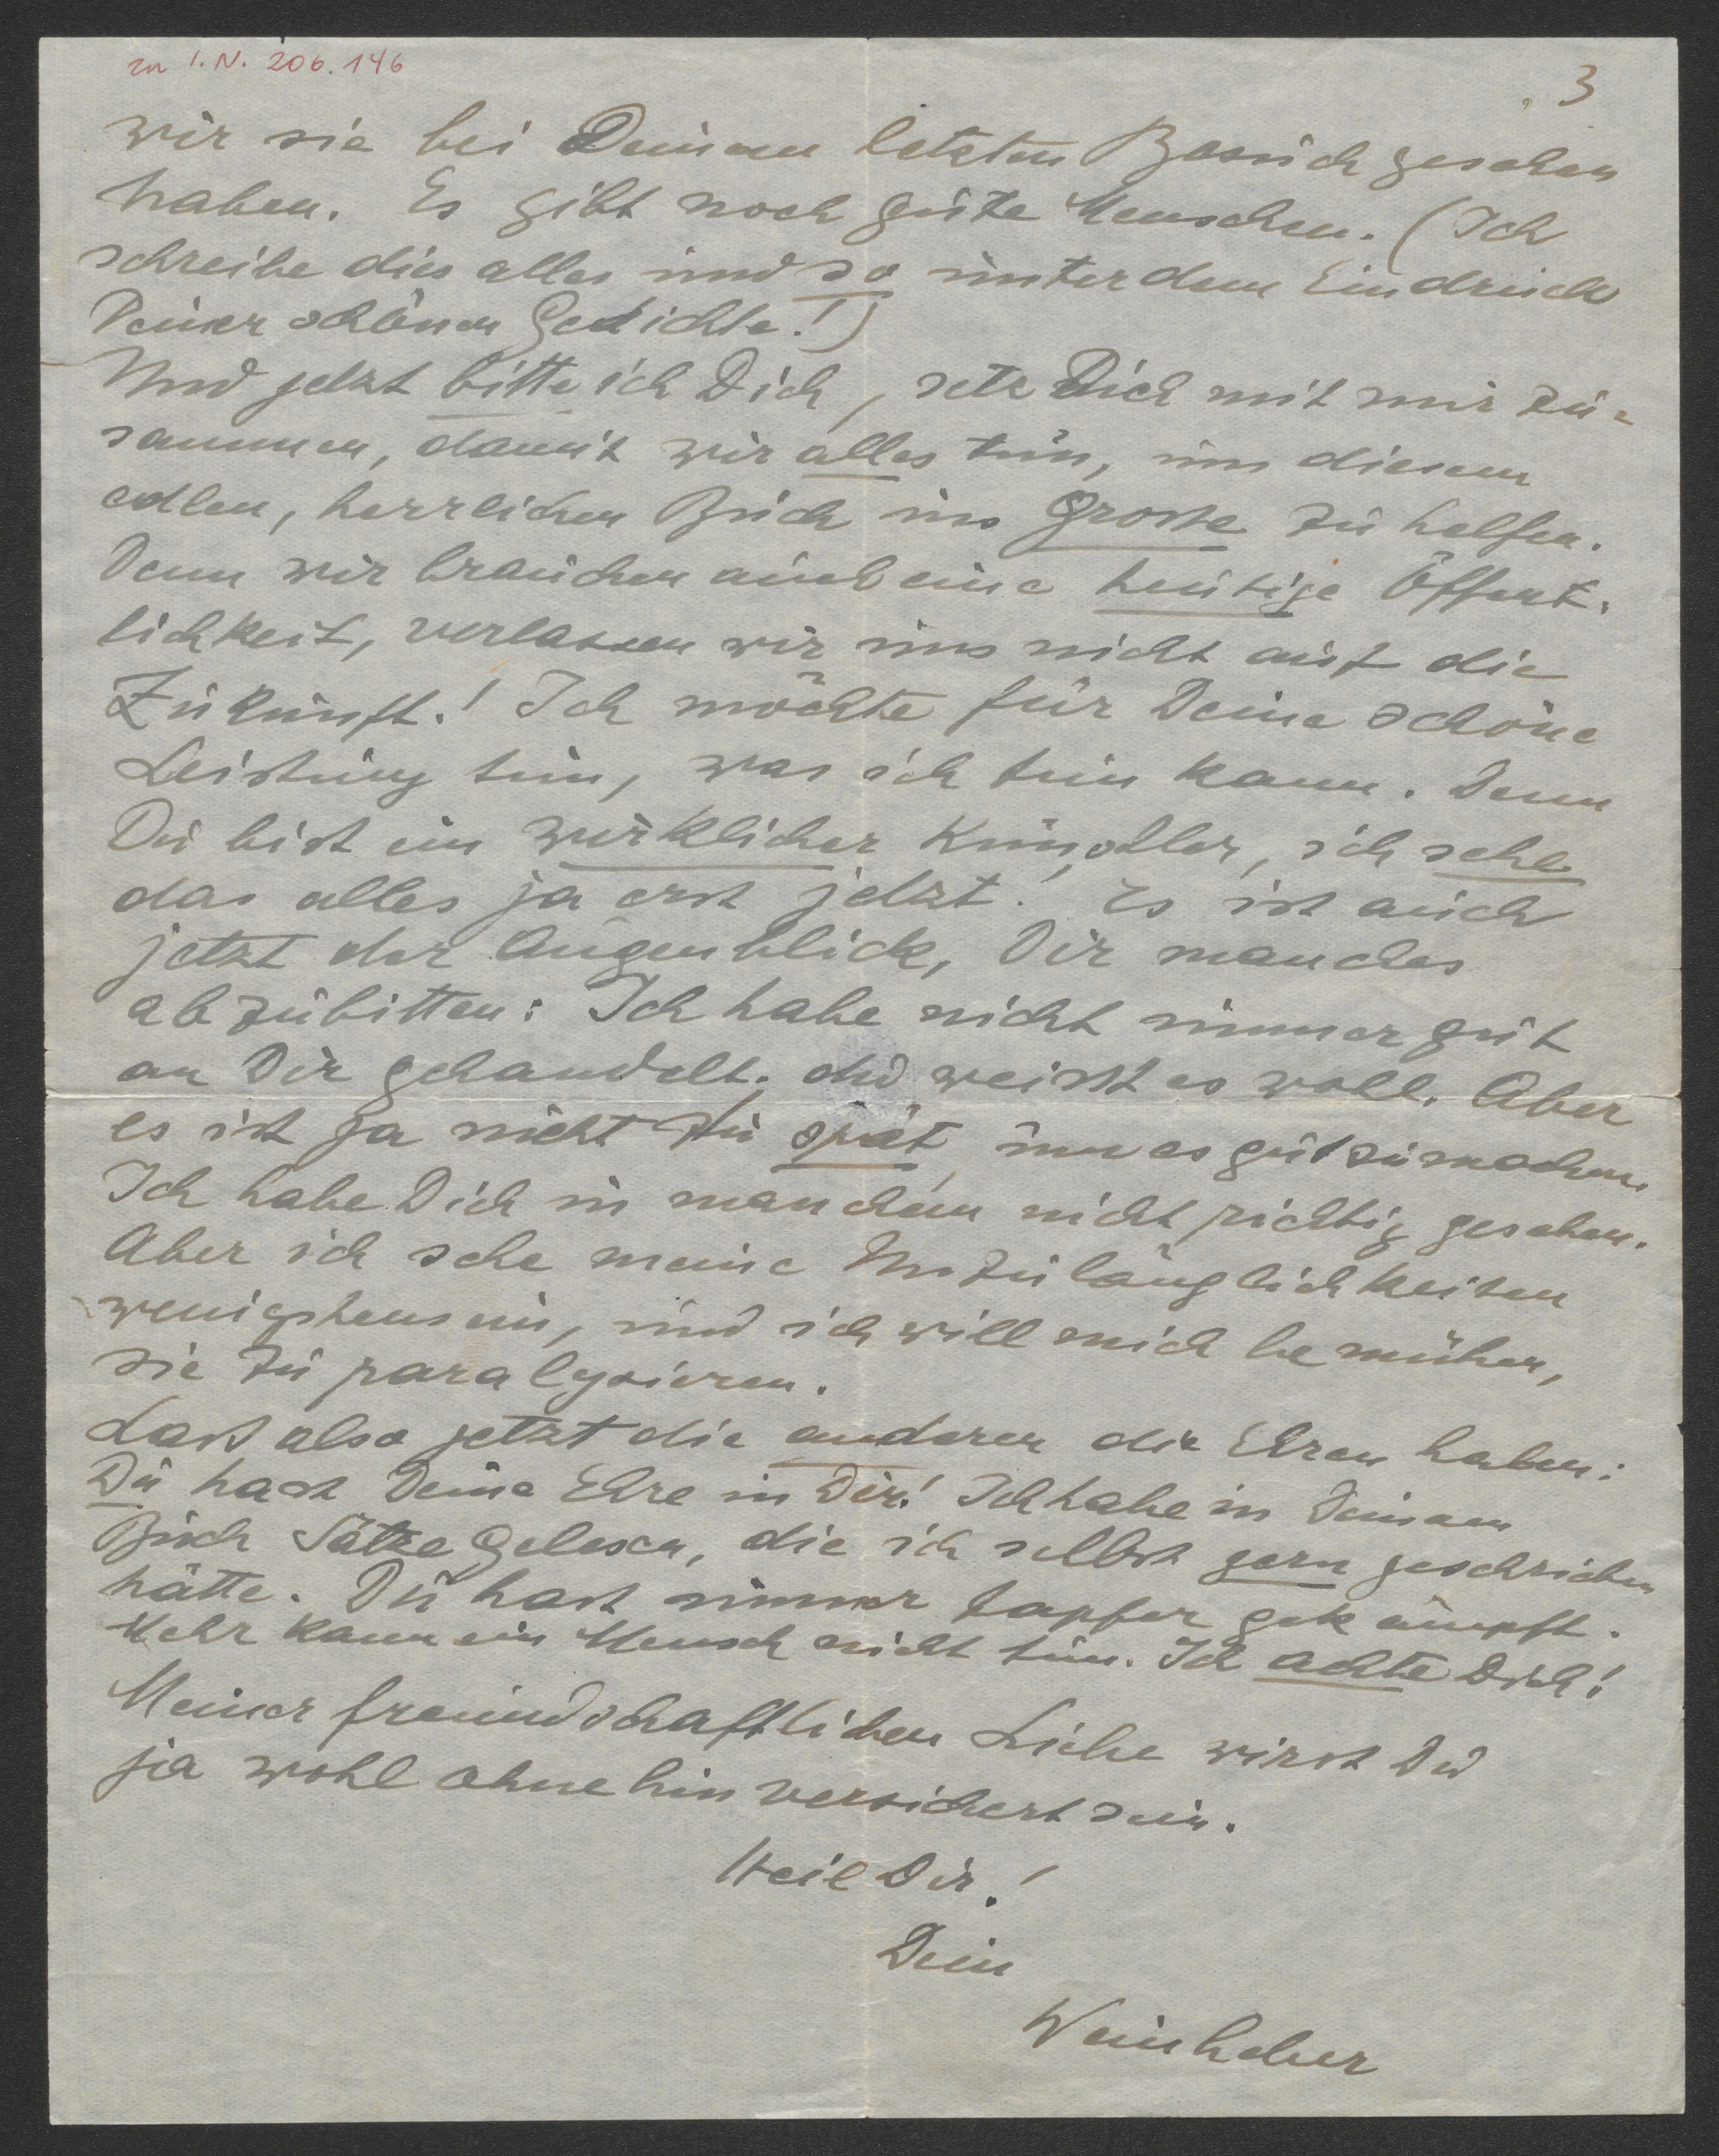 zu I.N. 206.146
3
wir sie bei Deinem letzten Besuch gesehen
haben. Es gibt noch gute Menschen. (Ich
schreibe dies alles und so unter dem Eindruck
Deiner schönen Gedichte!)
Und jetzt bitte ich Dich, setz Dich mit mir zu-
sammen, damit wir alles tun, um diesem
edlen, herrlichen Buch ins Grosse zu helfen.
Denn wir brauchen auch eine heutige Öffent-
lichkeit, verlassen wir uns nicht auf die
Zukunft! Ich möchte für Deine schöne
Leistung tun, was ich tun kann. Denn
Du bist ein wirklicher Künstler, ich sehe
das alles ja erst jetzt! Es ist auch
jetzt der Augenblick, Dir manches
abzubitten: Ich habe nicht immer gut
an Dir gehandelt. Du weisst es wohl. Aber
es ist ja nicht zu spät, um es gutzumachen.
Ich habe Dich in manchem nicht richtig gesehen.
Aber ich sehe meine Unzulänglichkeiten
wenigstens ein, und ich will mich bemühen,
sie zu paralysieren.
Lass also jetzt die anderen die Ehren haben:
Du hast Deine Ehre in Dir! Ich habe in Deinem
Buch Sätze gelesen, die ich selbst gern geschrieben
hätte. Du hast immer tapfer gekämpft.
Mehr kann ein Mensch nicht tun. Ich achte Dich!
Meiner freundschaftlichen Liebe wirst Du
ja wohl ohnehin versichert sein.
Heil Dir!
Dein
Weinheber